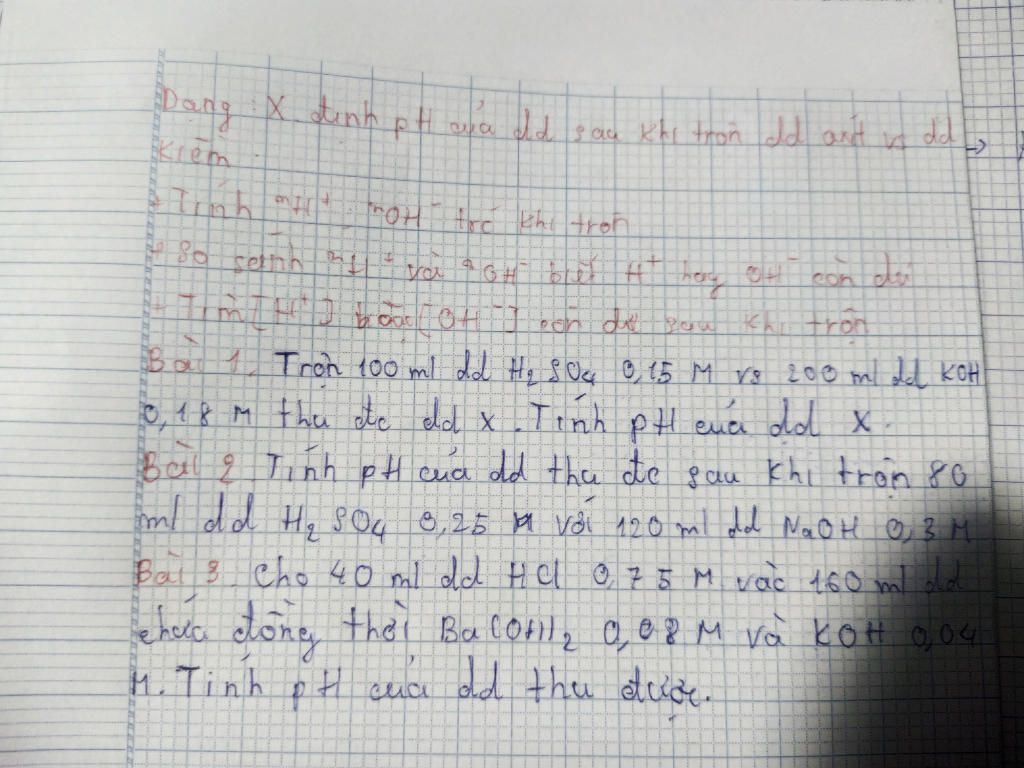 Dạng : X. định pH của dd sau khi trộn dd axit vs dd
kiềm
+ Tính nH+, nOH- trc khi trộn
+ So sánh nH+ và nOH- biết H+ hay OH- còn dư
+ Tìm [H+] hoặc [OH-] còn dư sau khi trộn
Bài 1. Trộn 100 ml dd H2SO4 0,15 M vs 200 ml dd KOH
0,18 M thu đc dd X. Tính pH của dd X.
Bài 2 Tính pH của dd thu đc sau khi trộn 80
ml dd H2SO4 0,25 M với 120 ml dd NaOH 0,3 M
Bài 3. Cho 40 ml dd HCl 0,75 M vào 160 ml dd
chứa đồng thời Ba(OH)2 0,08 M và KOH 0,04
M. Tính pH của dd thu được.